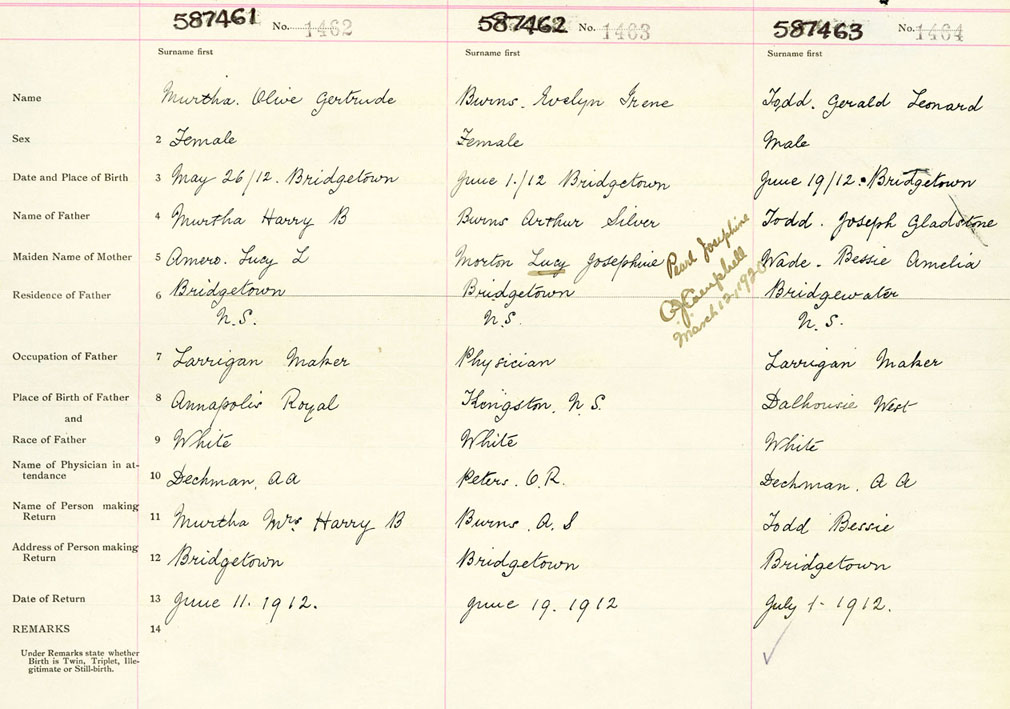 587461 No. 1462 587462 No. 1463 587463 No. 1464
Surname first Surname first Surname first
Name Murtha. Olive Gertrude Burns. Evelyn Irene Todd. Gerald Leonard
Sex 2 Female Female Male
Date and Place of Birth 3 May 26/12. Bridgetown June 1./12 Bridgetown June 19/12. Bridgetown
Name of Father 4 Murtha Harry B Burns Arthur Silver Todd. Joseph Gladstone
Maiden Name of Mother 5 Amero. Lucy L Morton Lucy Josephine Wade. Bessie Amelia
Pearl Josephine
Campbell
March 12, 1920
Residence of Father 6 Bridgetown Bridgetown Bridgewater
N.S. N.S. N.S.
Occupation of Father 7 Larrigan Maker Physician Larrigan Maker
Place of Birth of Father 8 Annapolis Royal Kingston, N.S. Dalhousie West
and
Race of Father 9 White White White
Name of Physician in at-
tendance 10 Dechman, A A Peters. O.R. Dechman. A A
Name of Person making
Return 11 Murtha Mrs Harry B Burns. A. S Todd Bessie
Address of Person making
Return 12 Bridgetown Bridgetown Bridgetown
Date of Return 13 June 11. 1912. June 19. 1912 July 1- 1912.
REMARKS 14
Under Remarks state whether
Birth is Twin, Triplet, Ille-
gitimate or Still-birth.